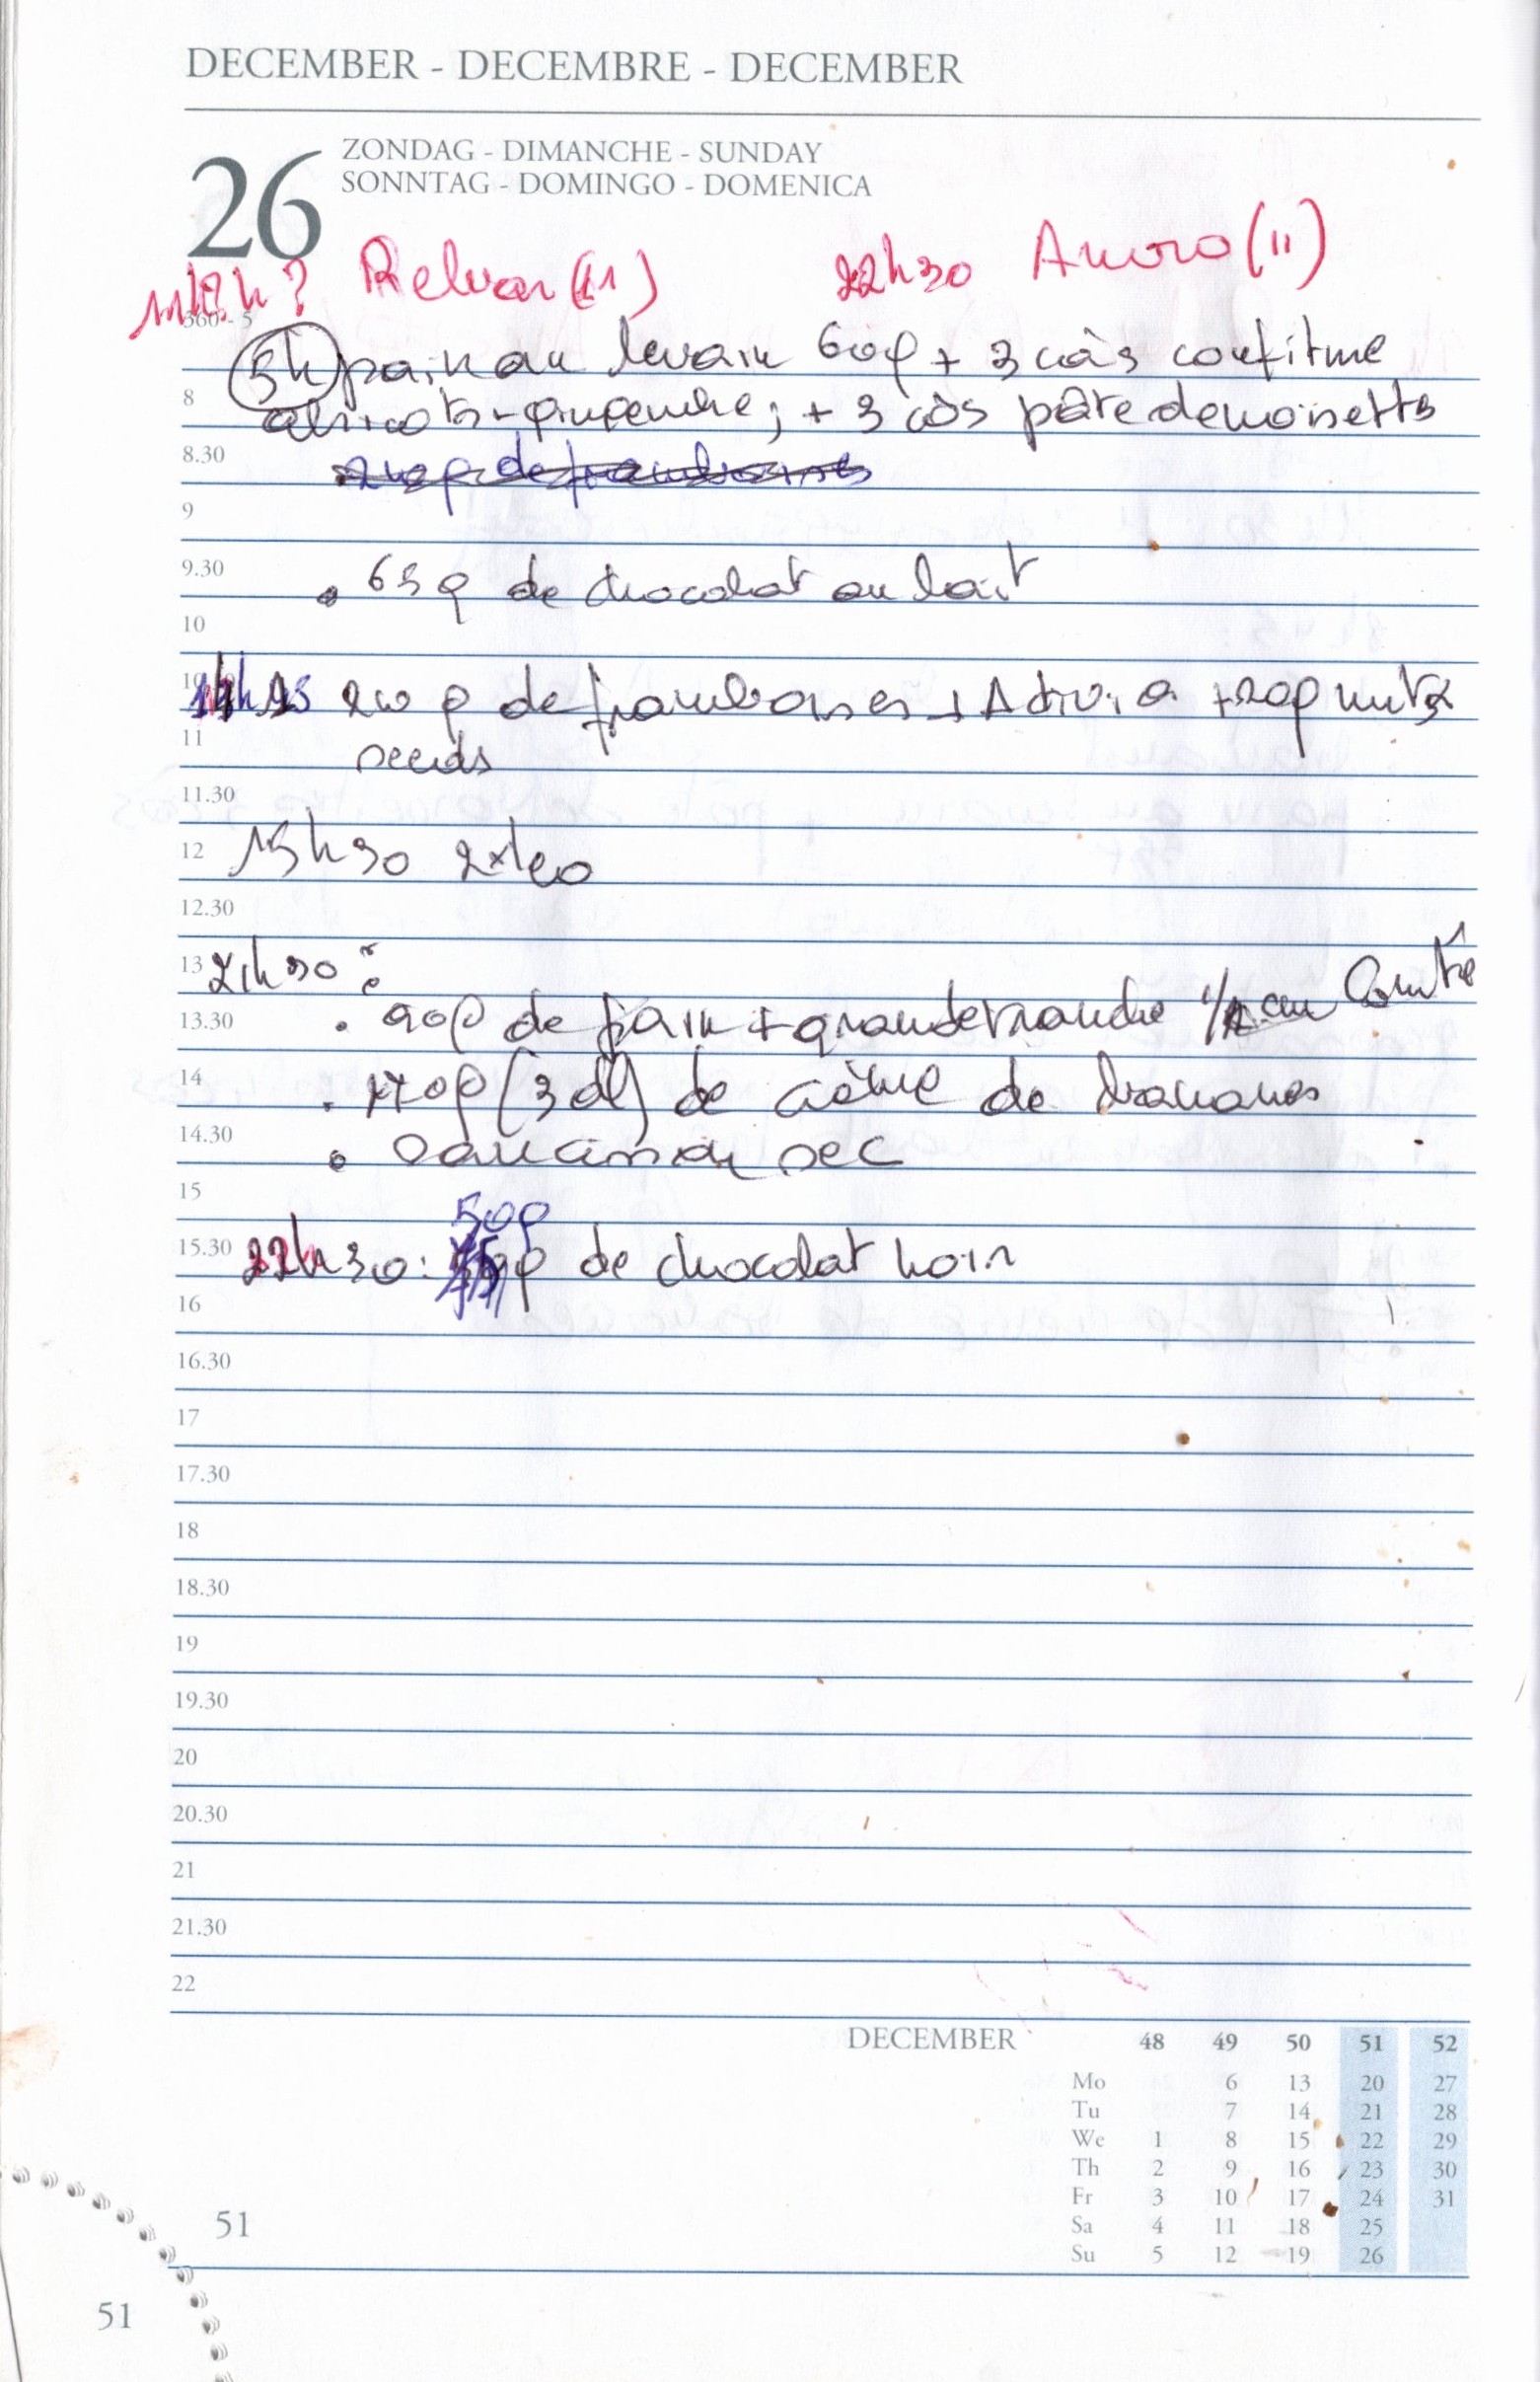 DECEMBER - DECEMBRE - DECEMBER
26
ZONDAG - DIMANCHE - SUNDAY
SONNTAG - DOMINGO - DOMENICA
h? Relvar (11) 22h30 Amoro (11)
360 - 5
5h pain au levain 60g + 3 càs confiture
8 abricots-gingembre; + 3 càs pâte de noisetts
8.30 de framboises
9
9.30 . 65 g de chocolat au lait
10
200 g de framboises + Activia + 20g nuts
11 seeds
11.30
12 15h30 2xleo
12.30
13 21h30 :
13.30 . 90g de pain + grande tranche cm Comté
14 . 170g (3 dl) de crème de bananes
14.30 . saucisson sec
15 50g
15.30 22h30: de chocolat noir
16
16.30
17
17.30
18
18.30
19
19.30
20
20.30
21
21.30
22
DECEMBER 48 49 50 51 52
Mo 6 13 20 27
Tu 7 14 21 28
We 1 8 15 22 29
Th 2 9 16 23 30
Fr 3 10 17 24 31
Sa 4 11 18 25
Su 5 12 19 26
51
51